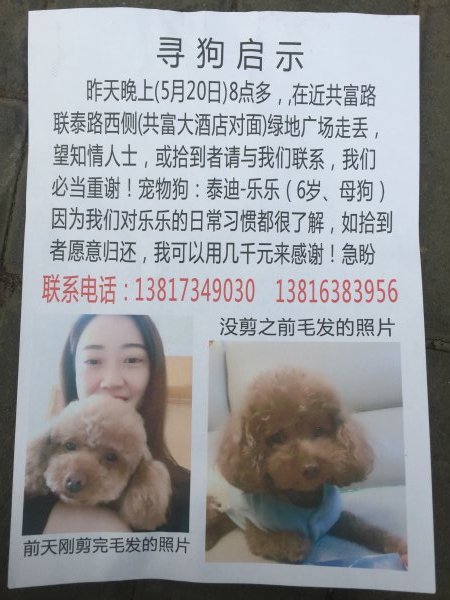 寻狗启示
昨天晚上(5月20日)8点多，,在近共富路
联泰路西侧(共富大酒店对面)绿地广场走丢，
望知情人士，或拾到者请与我们联系，我们
必当重谢！宠物狗：泰迪-乐乐（6岁、母狗）
因为我们对乐乐的日常习惯都很了解，如拾到
者愿意归还，我可以用几千元来感谢！急盼
联系电话：13817349030 13816383956
没剪之前毛发的照片
前天刚剪完毛发的照片